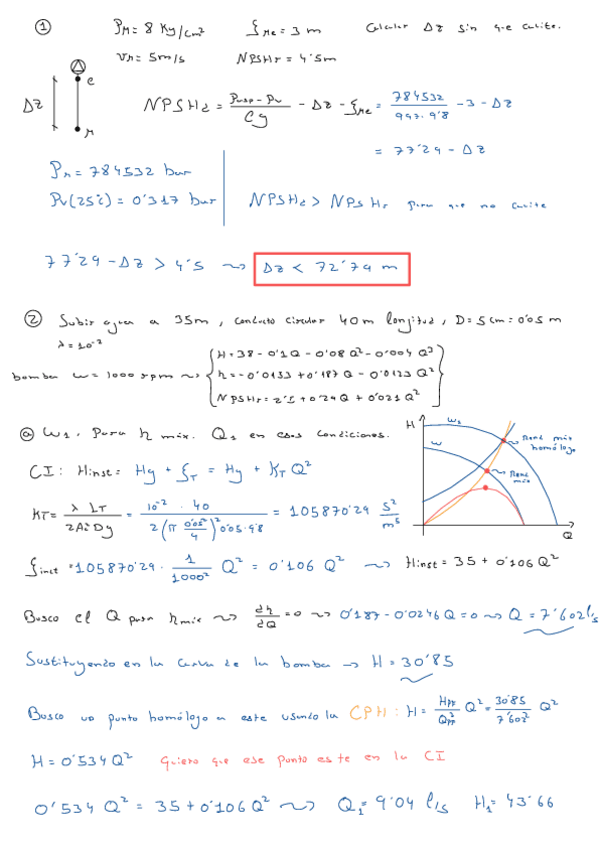 ① Pn = 8 Kg/cm² ζne = 3 m Calcular Δz sin que cavite.
Vn = 5m/s NPSHr = 4'5m
e
Δz
n
NPSHd = (Pasp - Pv)/ρg - Δz - ζne = 784532/(997·9'8) - 3 - Δz
= 77'29 - Δz
Pn = 784532 bar
Pv(25º) = 0'317 bar
NPSHd > NPSHr para que no cavite
77'29 - Δz > 4'5 ⇝ Δz < 72'79 m
② Subir agua a 35m, conducto circular 40m longitud, D = 5cm = 0'05 m
λ = 10⁻²
bomba ω = 1000 rpm ⇝
H = 38 - 0'1Q - 0'08Q² - 0'004Q³
η = -0'0133 + 0'187Q - 0'0123Q²
NPSHr = 2'1 + 0'24Q + 0'021Q²
ⓐ ω₁, para η máx. Q₁ en esas condiciones.
H
ω₁
ω
Rend máx homólogo
Rend máx
Q
CI: Hinst = Hg + ζT = Hg + KT Q²
KT = λ LT / 2A²Dg = 10⁻² · 40 / 2(π 0'05²/4)² 0'05·9'8 = 105870'29 s²/m⁵
ζinst = 105870'29 · 1/1000² Q² = 0'106 Q² ⇝ Hinst = 35 + 0'106 Q²
Busco el Q para η máx ⇝ dη/dQ = 0 ⇝ 0'187 - 0'0246Q = 0 ⇝ Q = 7'602 l/s
Sustituyendo en la curva de la bomba → H = 30'85
Busco un punto homólogo a este usando la CPH: H = HPF/Q²PF Q² = 30'85/7'602² Q²
H = 0'534Q² Quiero que ese punto este en la CI
0'534 Q² = 35 + 0'106 Q² ⇝ Q₁ = 9'04 l/s H₁ = 43'66